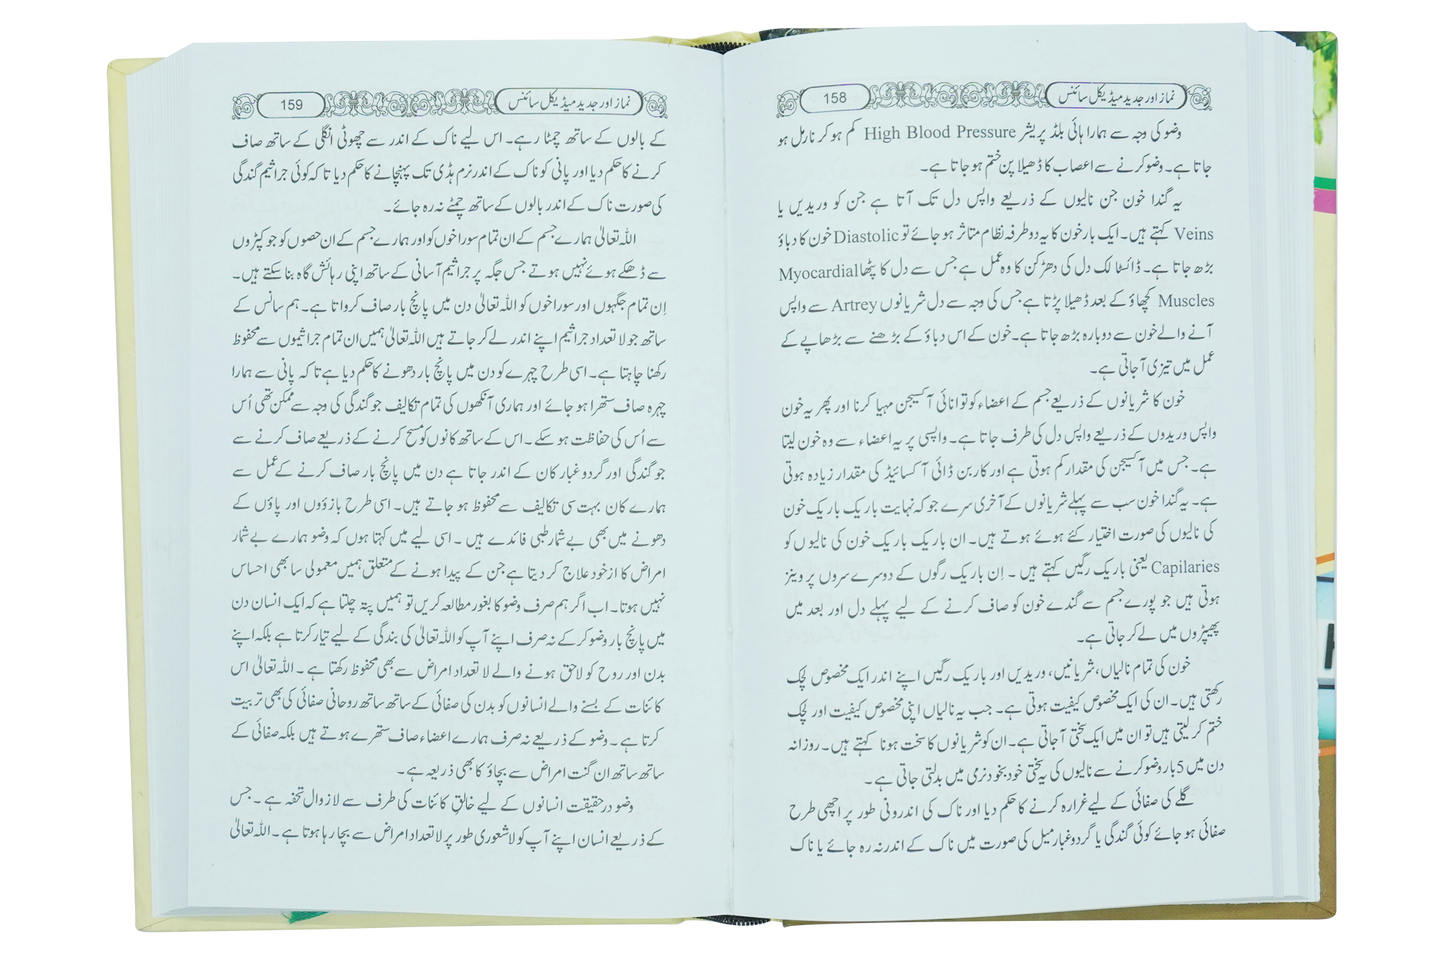 نماز اور جدید میڈیکل سائنس
158
وضو کی وجہ سے ہمارا ہائی بلڈ پریشر High Blood Pressure کم ہو کر نارمل ہو
جاتا ہے۔ وضو کرنے سے اعصاب کا ڈھیلا پن ختم ہو جاتا ہے۔
یہ گندا خون جن نالیوں کے ذریعے واپس دل تک آتا ہے جن کو وریدیں یا
Veins کہتے ہیں۔ ایک بار خون کا یہ دو طرفہ نظام متاثر ہو جائے تو Diastolic خون کا دباؤ
بڑھ جاتا ہے۔ ڈائسٹا لک دل کی دھڑکن کا وہ عمل ہے جس سے دل کا پٹھا Myocardial
Muscles کھچاؤ کے بعد ڈھیلا پڑتا ہے جس کی وجہ سے دل شریانوں Artrey سے واپس
آنے والے خون سے دوبارہ بڑھ جاتا ہے۔ خون کے اس دباؤ کے بڑھنے سے بڑھاپے کے
عمل میں تیزی آ جاتی ہے۔
خون کا شریانوں کے ذریعے جسم کے اعضاء کو توانائی آکسیجن مہیا کرنا اور پھر یہ خون
واپس وریدوں کے ذریعے واپس دل کی طرف جاتا ہے۔ واپسی پر یہ اعضاء سے وہ خون لیتا
ہے۔ جس میں آکسیجن کی مقدار کم ہوتی ہے اور کاربن ڈائی آکسائیڈ کی مقدار زیادہ ہوتی
ہے۔ یہ گندا خون سب سے پہلے شریانوں کے آخری سرے جو کہ نہایت باریک باریک خون
کی نالیوں کی صورت اختیار کئے ہوئے ہوتے ہیں۔ ان باریک باریک خون کی نالیوں کو
Capilaries یعنی باریک رگیں کہتے ہیں۔ اِن باریک رگوں کے دوسرے سروں پر وینز
ہوتی ہیں جو پورے جسم سے گندے خون کو صاف کرنے کے لیے پہلے دل اور بعد میں
پھیپڑوں میں لے کر جاتی ہے۔
خون کی تمام نالیاں، شریانیں، وریدیں اور باریک رگیں اپنے اندر ایک مخصوص لچک
رکھتی ہیں۔ ان کی ایک مخصوص کیفیت ہوتی ہے۔ جب یہ نالیاں اپنی مخصوص کیفیت اور لچک
ختم کر لیتی ہیں تو ان میں ایک سختی آ جاتی ہے۔ ان کو شریانوں کا سخت ہونا کہتے ہیں۔ روزانہ
دن میں 5 بار وضو کرنے سے نالیوں کی یہ سختی خود بخود نرمی میں بدلتی جاتی ہے۔
گلے کی صفائی کے لیے غرارہ کرنے کا حکم دیا اور ناک کی اندرونی طور پر اچھی طرح
صفائی ہو جائے کوئی گندگی یا گرد و غبار میل کی صورت میں ناک کے اندر نہ رہ جائے یا ناک
نماز اور جدید میڈیکل سائنس
159
کے بالوں کے ساتھ چمٹا رہے۔ اس لیے ناک کے اندر سے چھوٹی انگلی کے ساتھ صاف
کرنے کا حکم دیا اور پانی کو ناک کے اندر نرم ہڈی تک پہنچانے کا حکم دیا تا کہ کوئی جراثیم گندگی
کی صورت ناک کے اندر بالوں کے ساتھ چمٹے نہ رہ جائے۔
اللہ تعالیٰ ہمارے جسم کے ان تمام سوراخوں کو اور ہمارے جسم کے ان حصوں کو جو کپڑوں
سے ڈھکے ہوئے نہیں ہوتے جس جگہ پر جراثیم آسانی کے ساتھ اپنی رہائش گاہ بنا سکتے ہیں۔
اِن تمام جگہوں اور سوراخوں کو اللہ تعالیٰ دن میں پانچ بار صاف کرواتا ہے۔ ہم سانس کے
ساتھ جو لا تعداد جراثیم اپنے اندر لے کر جاتے ہیں اللہ تعالیٰ ہمیں ان تمام جراثیموں سے محفوظ
رکھنا چاہتا ہے۔ اسی طرح چہرے کو دن میں پانچ بار دھونے کا حکم دیا ہے تا کہ پانی سے ہمارا
چہرہ صاف ستھرا ہو جائے اور ہماری آنکھوں کی تمام تکالیف جو گندگی کی وجہ سے ممکن تھی اُس
سے اُس کی حفاظت ہو سکے۔ اس کے ساتھ کانوں کو مسح کرنے کے ذریعے صاف کرنے سے
جو گندگی اور گرد و غبار کان کے اندر جاتا ہے دن میں پانچ بار صاف کرنے کے عمل سے
ہمارے کان بہت سی تکالیف سے محفوظ ہو جاتے ہیں۔ اسی طرح بازوؤں اور پاؤں کے
دھونے میں بھی بے شمار طبی فائدے ہیں۔ اسی لیے میں کہتا ہوں کہ وضو ہمارے بے شمار
امراض کا از خود علاج کر دیتا ہے جن کے پیدا ہونے کے متعلق ہمیں معمولی سا بھی احساس
نہیں ہوتا۔ اب اگر ہم صرف وضو کا بغور مطالعہ کریں تو ہمیں پتہ چلتا ہے کہ ایک انسان دن
میں پانچ بار وضو کر کے نہ صرف اپنے آپ کو اللہ تعالیٰ کی بندگی کے لیے تیار کرتا ہے بلکہ اپنے
بدن اور روح کو لاحق ہونے والے لا تعداد امراض سے بھی محفوظ رکھتا ہے۔ اللہ تعالیٰ اس
کائنات کے بسنے والے انسانوں کو بدن کی صفائی کے ساتھ ساتھ روحانی صفائی کی بھی تربیت
کرتا ہے۔ وضو کے ذریعے نہ صرف ہمارے اعضاء صاف ستھرے ہوتے ہیں بلکہ صفائی کے
ساتھ ساتھ ان گنت امراض سے بچاؤ کا بھی ذریعہ ہے۔
وضو در حقیقت انسانوں کے لیے خالقِ کائنات کی طرف سے لا زوال تحفہ ہے۔ جس
کے ذریعے انسان اپنے آپ کو لا شعوری طور پر لا تعداد امراض سے بچا رہا ہوتا ہے۔ اللہ تعالیٰ